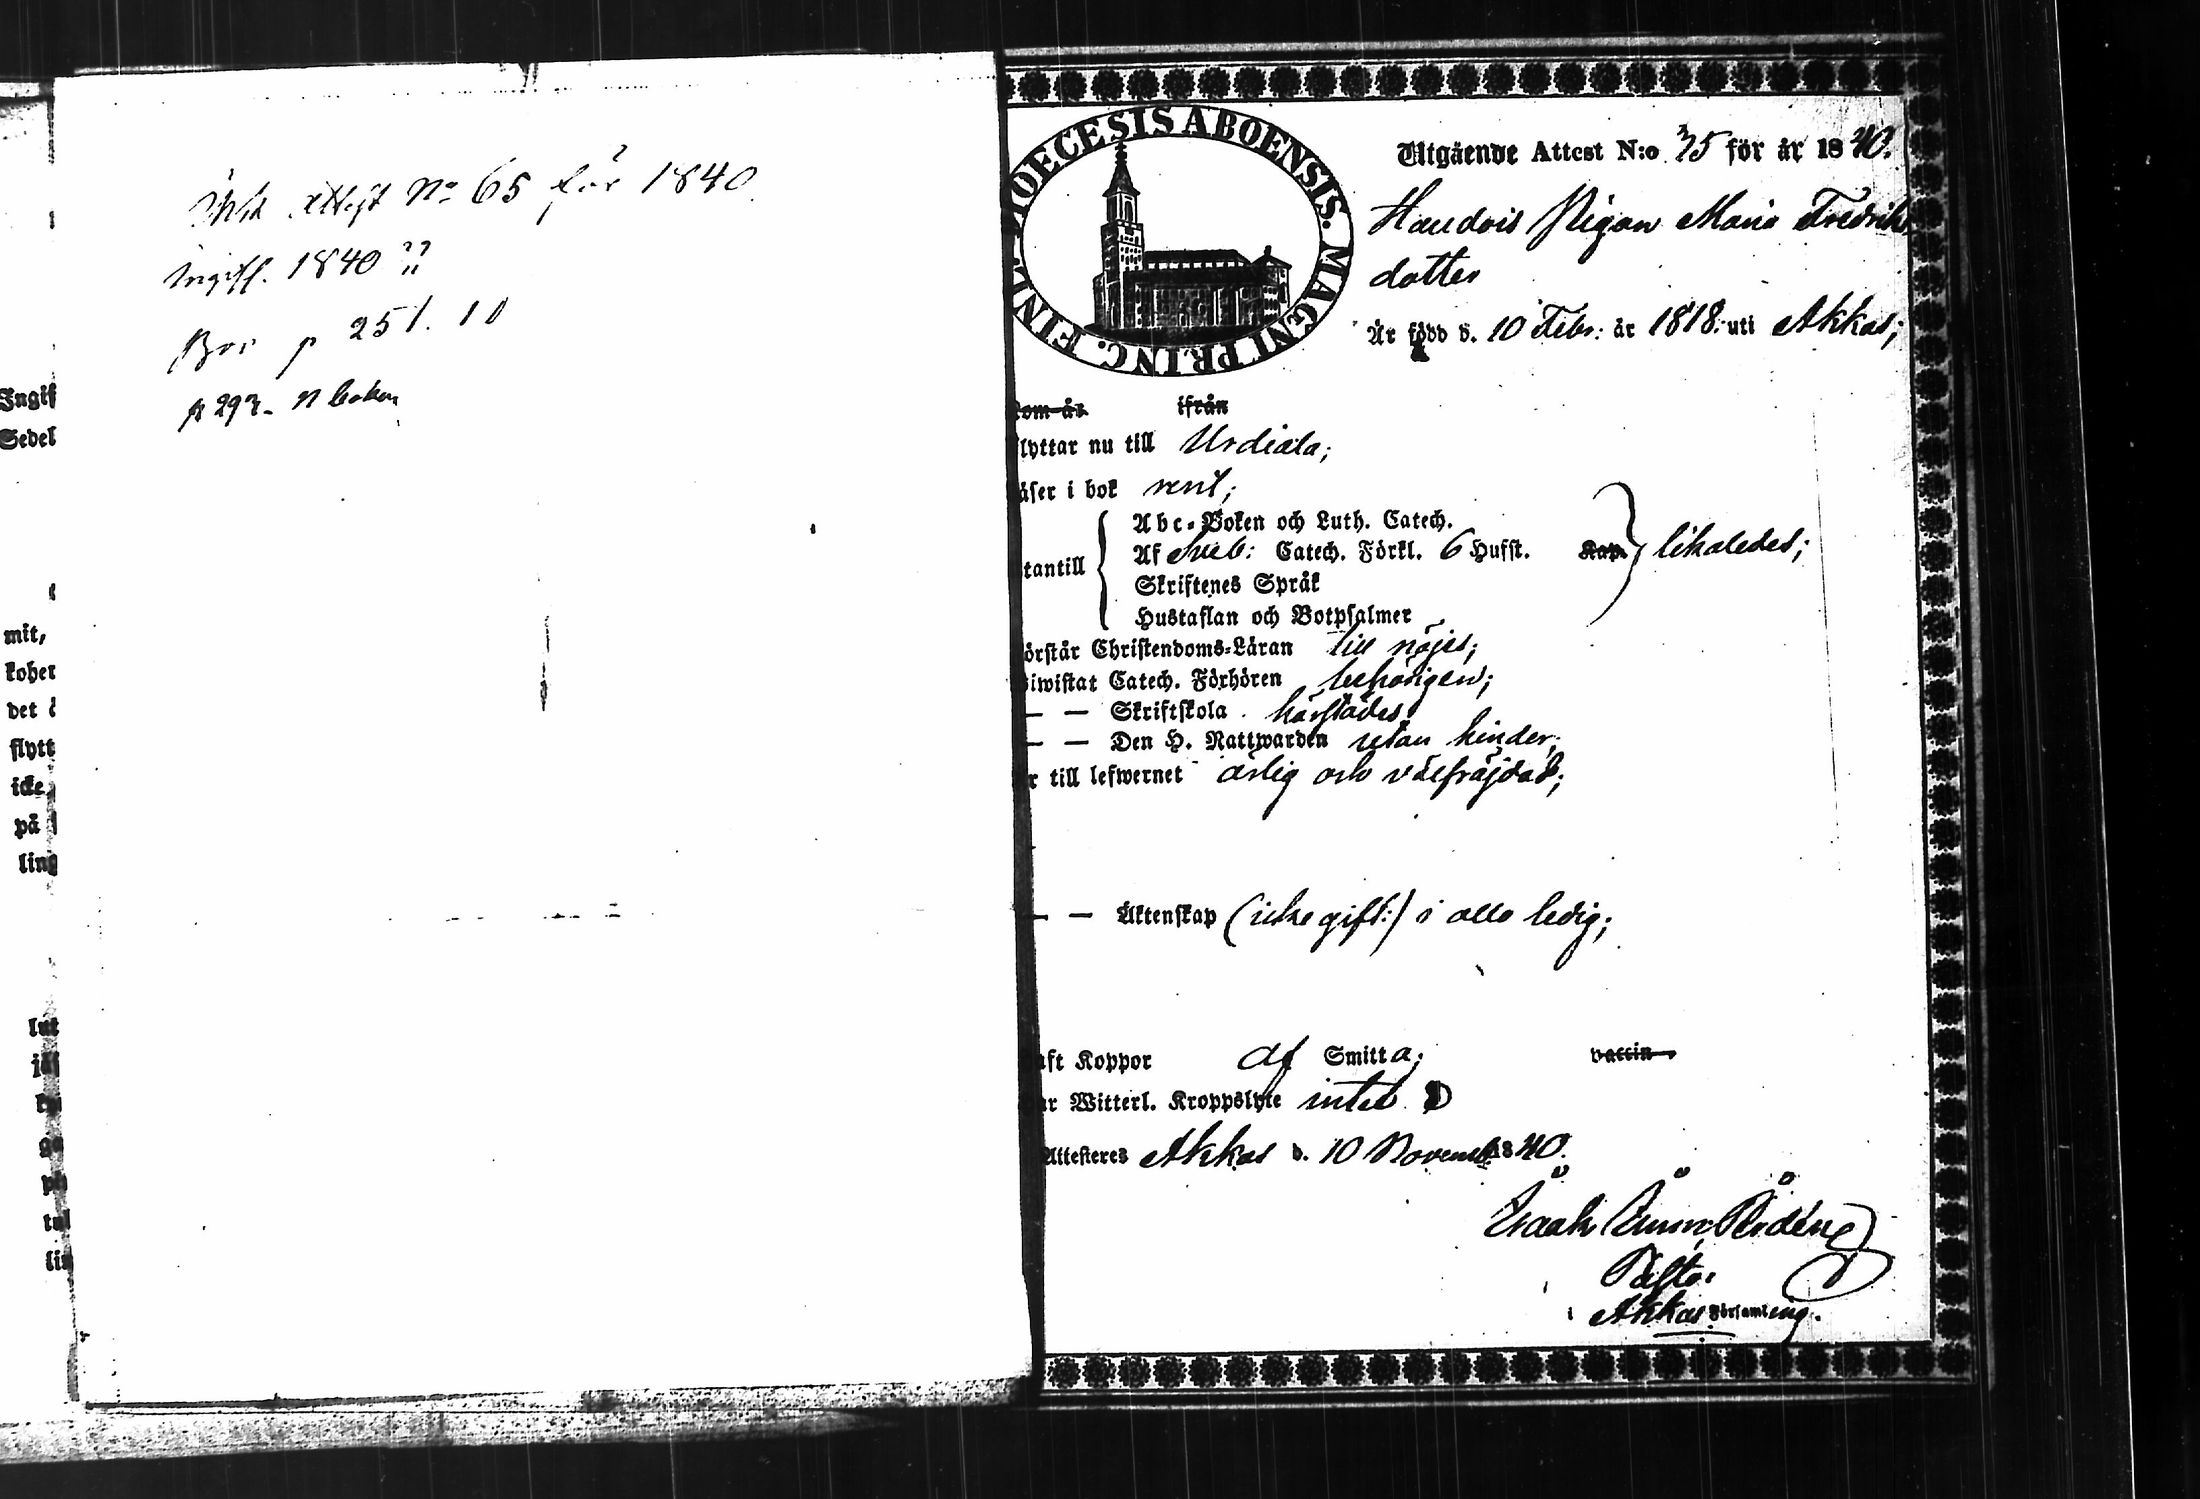 Attest No 65 för 1840
Ingiff. 1840
p 251. 10
p 293. n boken
Ingif
Sedel
mit,
koher
det
flytt
icke
på
ling
lut
DIOECESIS ABOENSIS. MAGNI PRINC. FINL.
Utgående Attest N:o 75 för år 1840.
Haudois Pigan Maria Fredriks
dotter
Är född d. 10 Febr: år 1818. uti Akkas;
kom år ifrån
flyttar nu till Urdiala;
läser i bok rent;
Abc-Boken och Luth. Catech.
utantill Af Sveb: Catech. Förkl. 6 Hufst. Kap. likaledes;
Skriftenes Språk
Hustaflan och Botpsalmer
förstår Christendoms-Läran till nöjes;
biwistat Catech. Förhören behörigen;
— — Skriftskola härstädes
— — Den H. Nattwarden utan hinder;
är till lefwernet ärlig och välfräjdad;
— — Äktenskap (icke gift:) i allo ledig;
haft Koppor af Smitta; vaccin.
har Witterl. Kroppslyte intet
Attesteras Akkas d. 10 Novemb. 1840.
Isaak Eman. Rodéng
Pastor
i Akkas Församling.